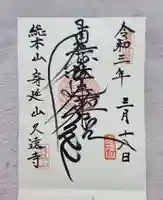 令和三年 三月十八日
南無妙法蓮華経
総本山 身延山 久遠寺